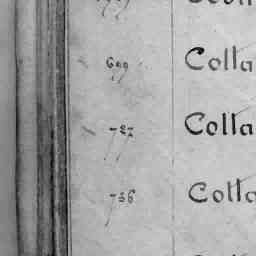 699 Colla
727 Colla
736 Colla